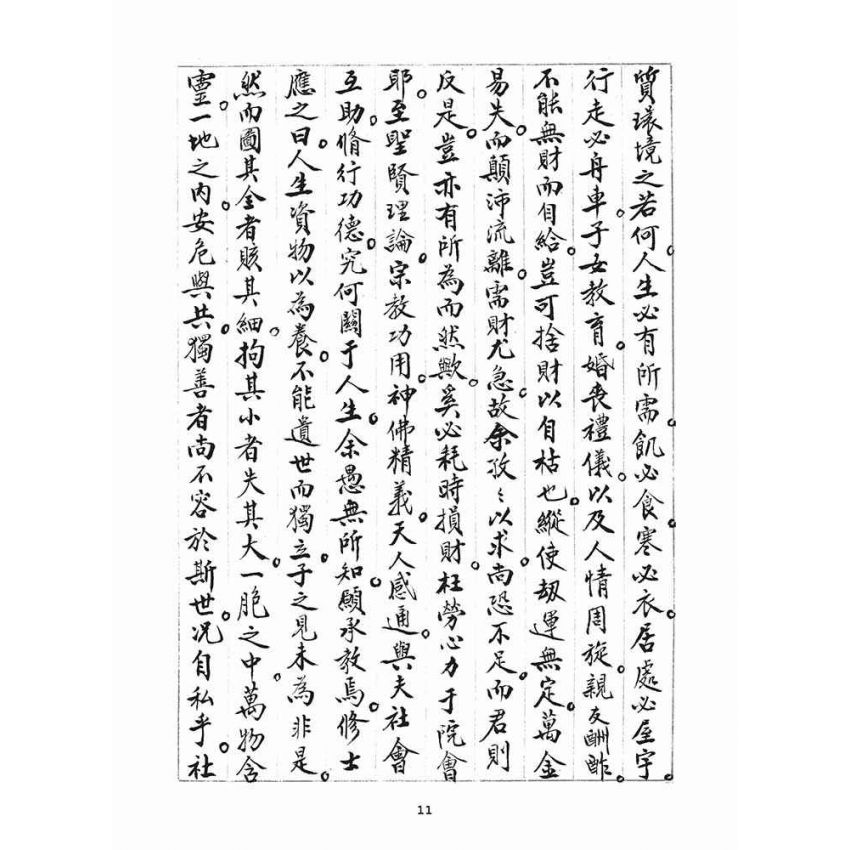 質環境之若何。人生必有所需。飢必食。寒必衣。居處必屋宇。
行走必舟車。子女教育。婚丧禮儀。以及人情周旋。親友酬酢。
不能無財而自給。豈可捨財以自枯也。縱使刼運無定。萬金
易失。而顛沛流離。需財尤急。故余孜〻以求。尚恐不足。而君則
反是。豈亦有所為而然歟。奚必耗時損財。枉勞心力于院會
耶。至聖賢理論。宗教功用。神佛精義。天人感通。與夫社會
互助。脩行功德。究何關于人生。余愚無所知。願承教焉。修士
應之曰。人生資物以為養。不能遺世而獨立。子之見未為非是。
然而圖其全者賅其細。拘其小者失其大。一脆之中。萬物含
靈。一地之內。安危與共。獨善者尚不容於斯世。况自私乎。社
11